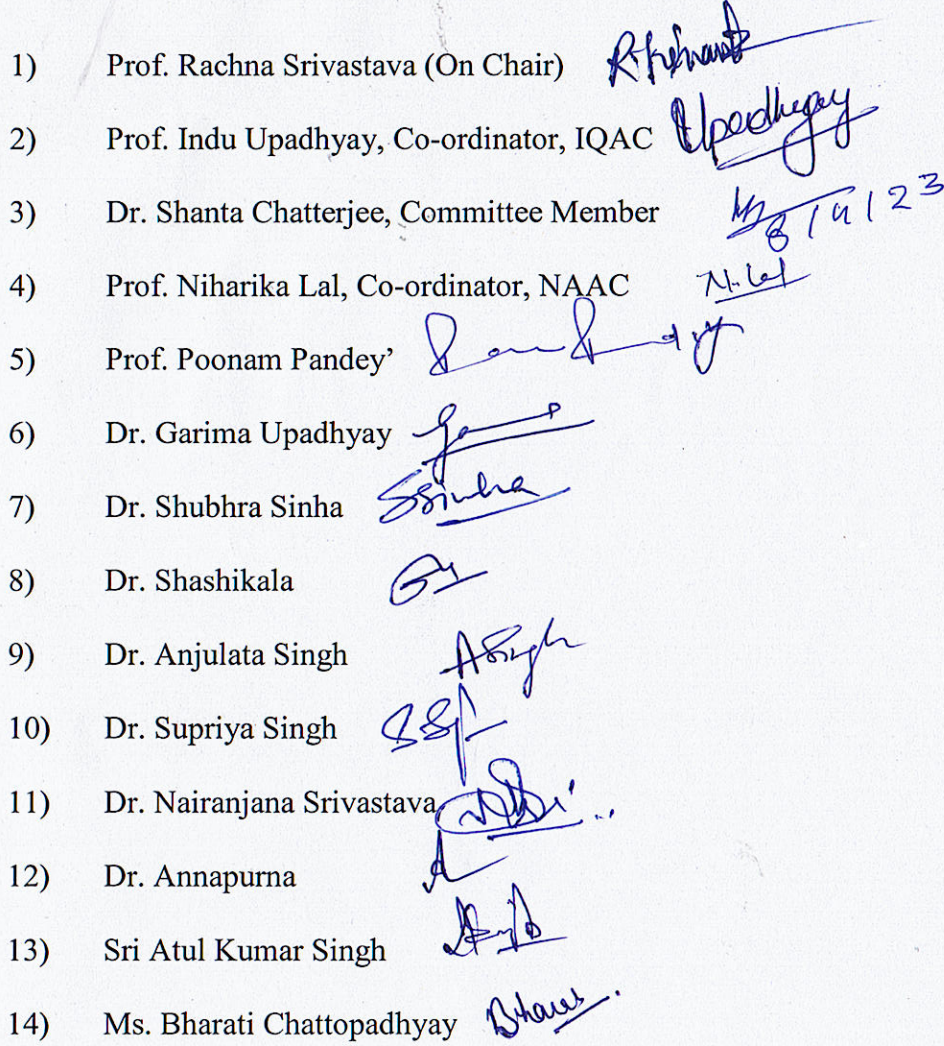 1) Prof. Rachna Srivastava (On Chair)
2) Prof. Indu Upadhyay, Co-ordinator, IQAC Upadhyay
3) Dr. Shanta Chatterjee, Committee Member 8/9/23
4) Prof. Niharika Lal, Co-ordinator, NAAC N. Lal
5) Prof. Poonam Pandey’
6) Dr. Garima Upadhyay
7) Dr. Shubhra Sinha SSinha
8) Dr. Shashikala
9) Dr. Anjulata Singh ASingh
10) Dr. Supriya Singh
11) Dr. Nairanjana Srivastava
12) Dr. Annapurna
13) Sri Atul Kumar Singh
14) Ms. Bharati Chattopadhyay